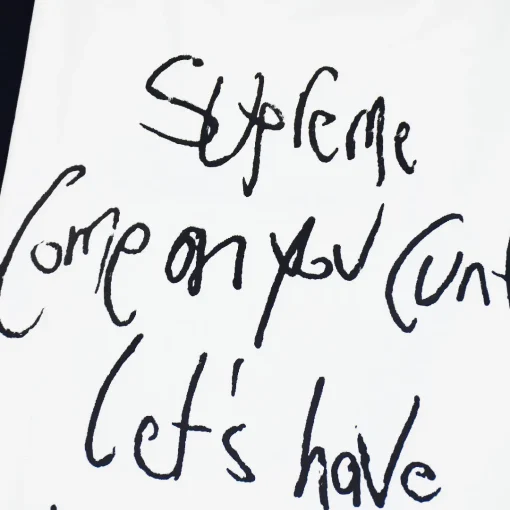 Supreme
Come on you cunt
Let's have